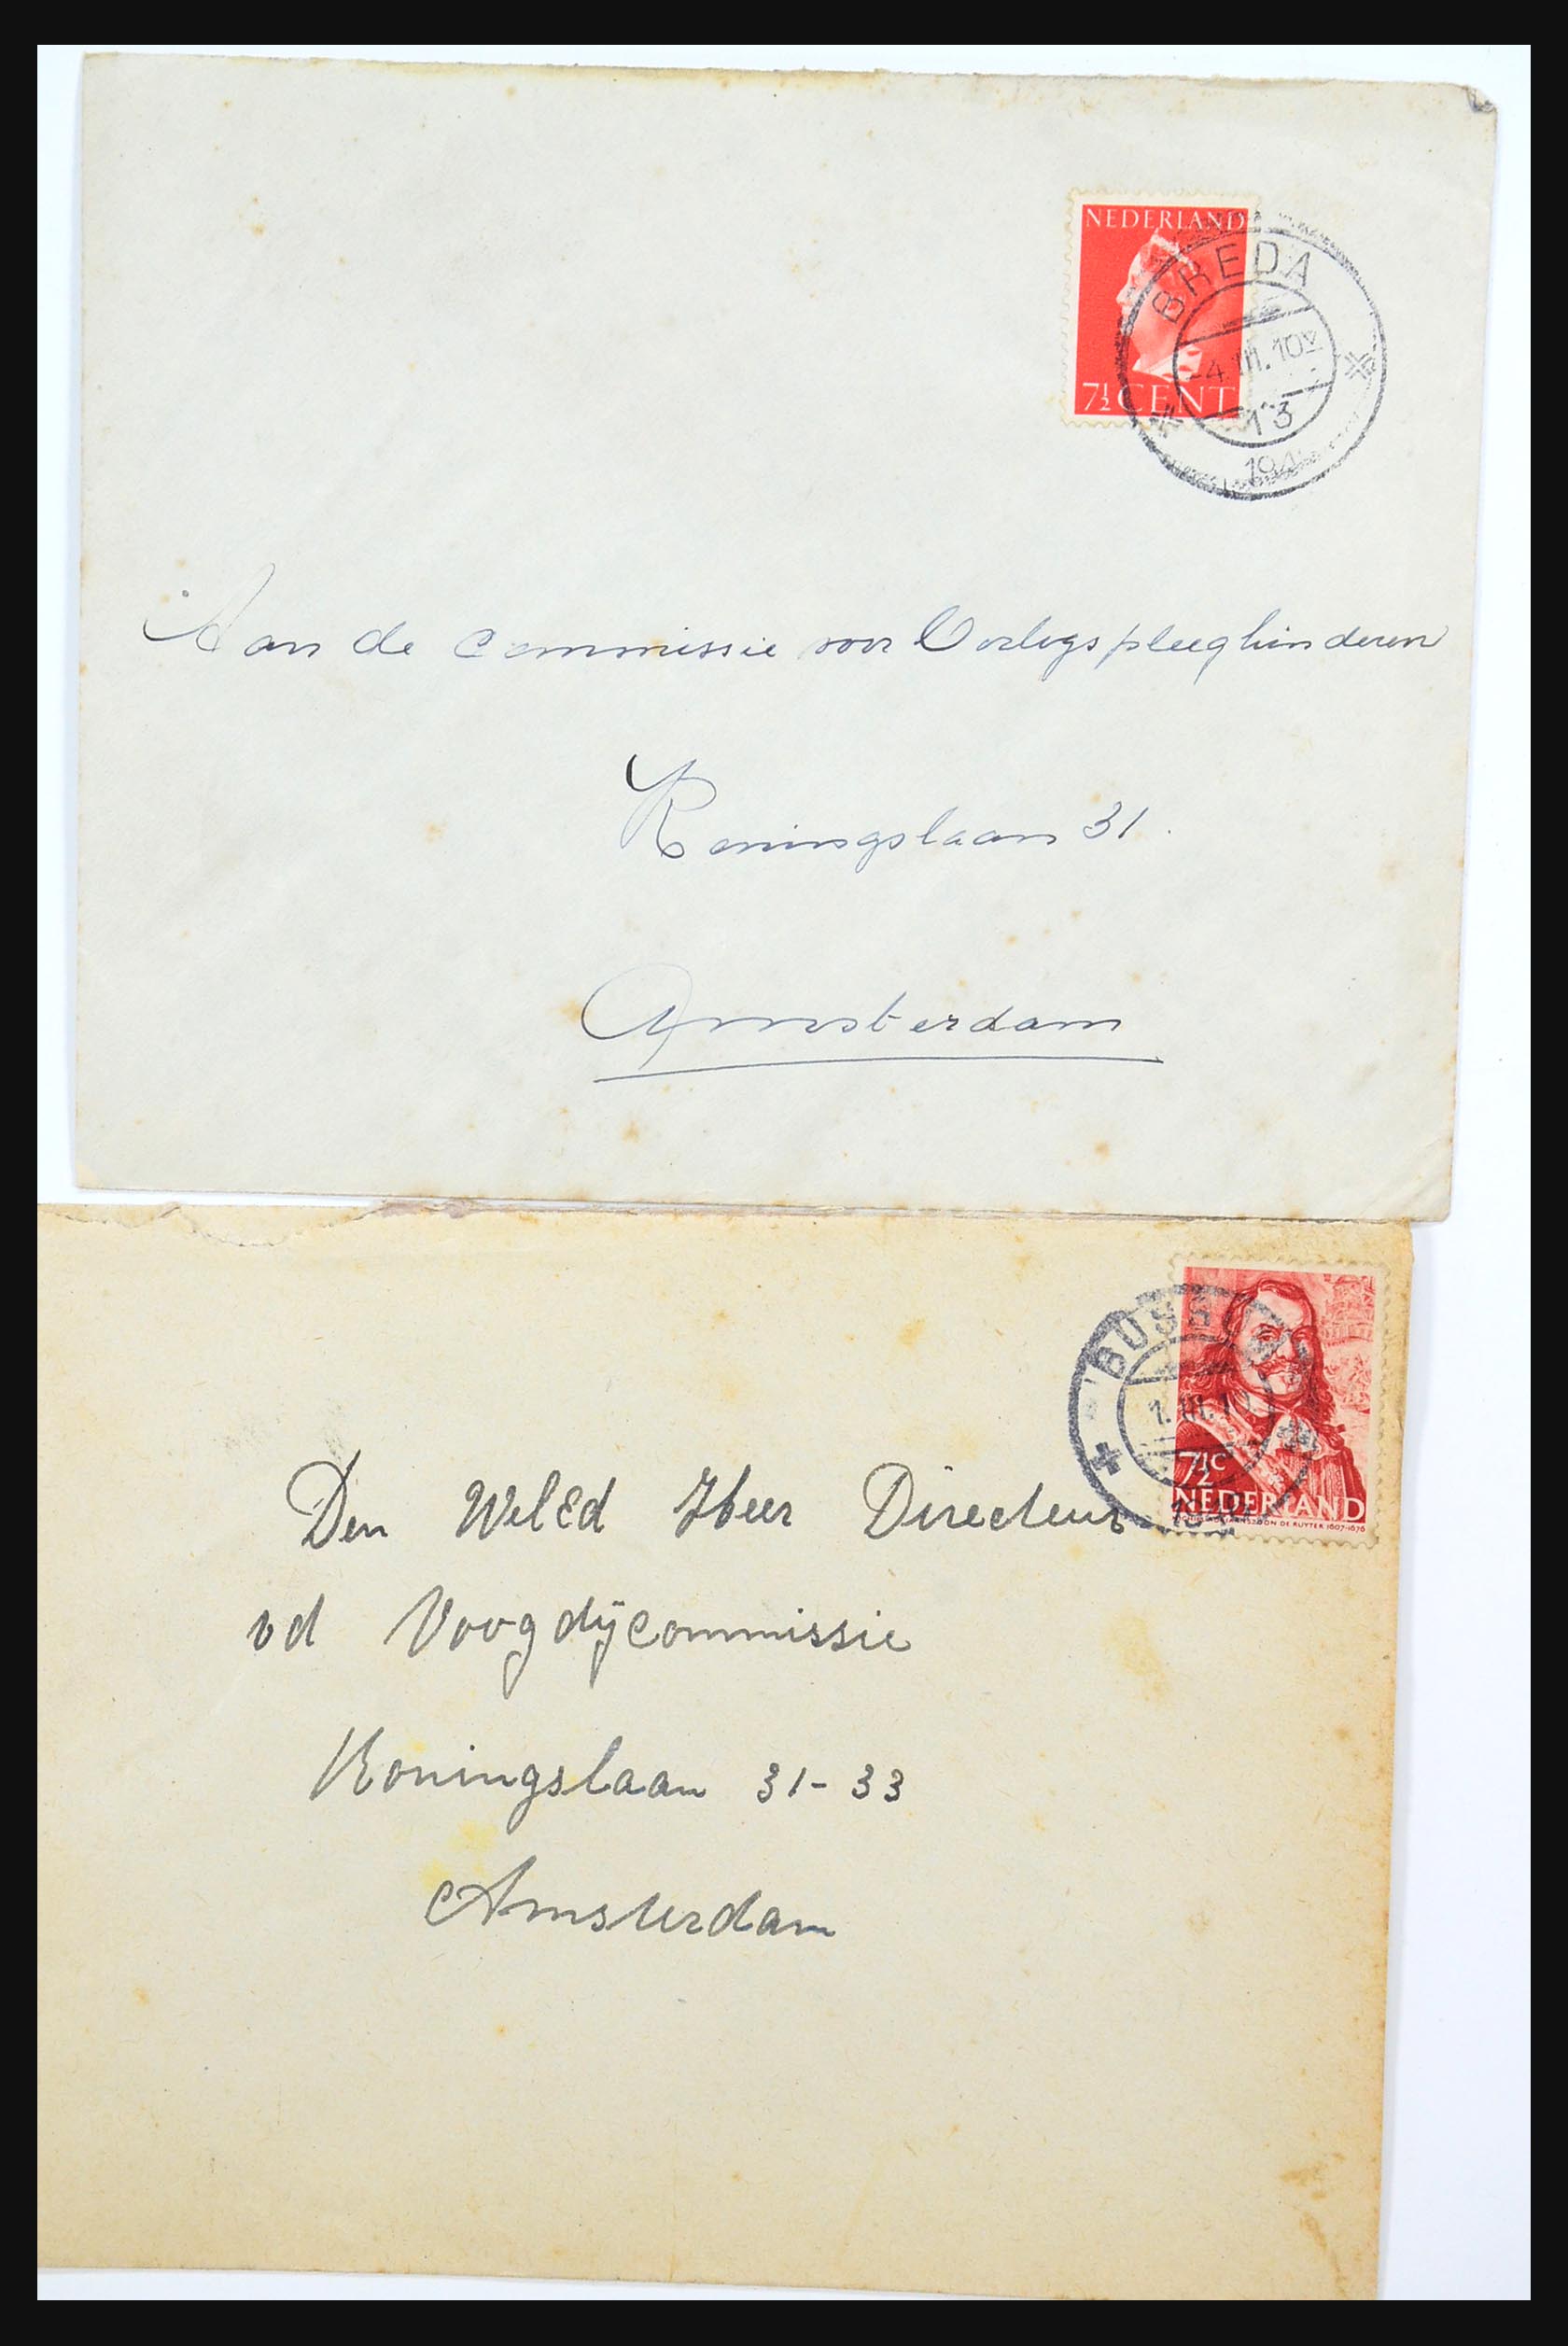 NEDERLAND
7½ CENT
BREDA
-4 III. 10V
13
194
Aan de Commissie voor Oorlogspleegkinderen
Koningslaan 31.
Amsterdam
BUSSUM
1. III. 1
7½ C
NEDERLAND
DE RUYTER 1607-1676
Den WelEd Heer Directeur
vd Voogdijcommissie
Koningslaan 31-33
Amsterdam